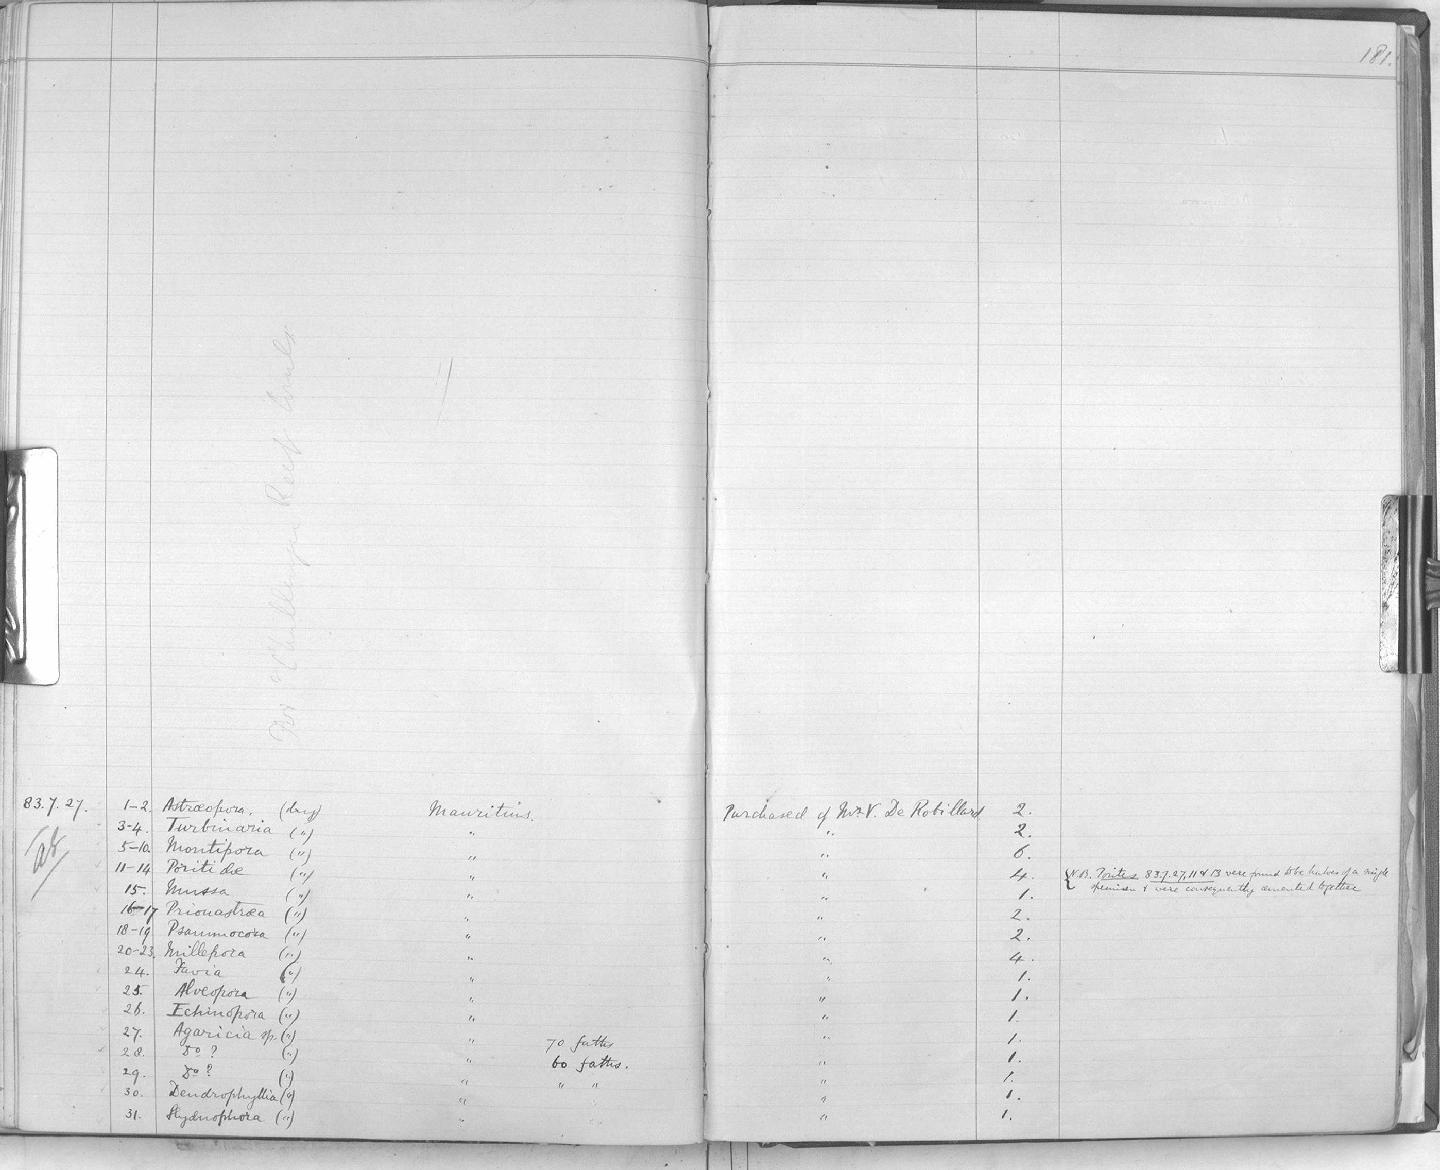 181.
For "Challenger Reef Corals
83.7.27. 1-2. Astræopora. (dry) Mauritius. Purchased of Mr V. De Robillard 2.
3-4. Turbinaria (") " " 2.
5-10. Montipora (") " " 6.
11-14 Poritidæ (") " " 4. N.B. Porites 83.7.27, 11 & 13 were found to be halves of a single
specimen & were consequently cemented together
15. Mussa (") " " 1.
16-17 Prionastræa (") " " 2.
18-19 Psammocora (") " " 2.
20-23. Millepora (") " " 4.
24. Favia (") " " 1.
25. Alveopora (") " " 1.
26. Echinopora (") " " 1.
27. Agaricia sp. (") " 70 faths " 1.
28. Do ? (") " 60 faths. " 1.
29. Do ? (") " " " " 1.
30. Dendrophyllia (") " " 1.
31. Hydnophora (") " " 1.